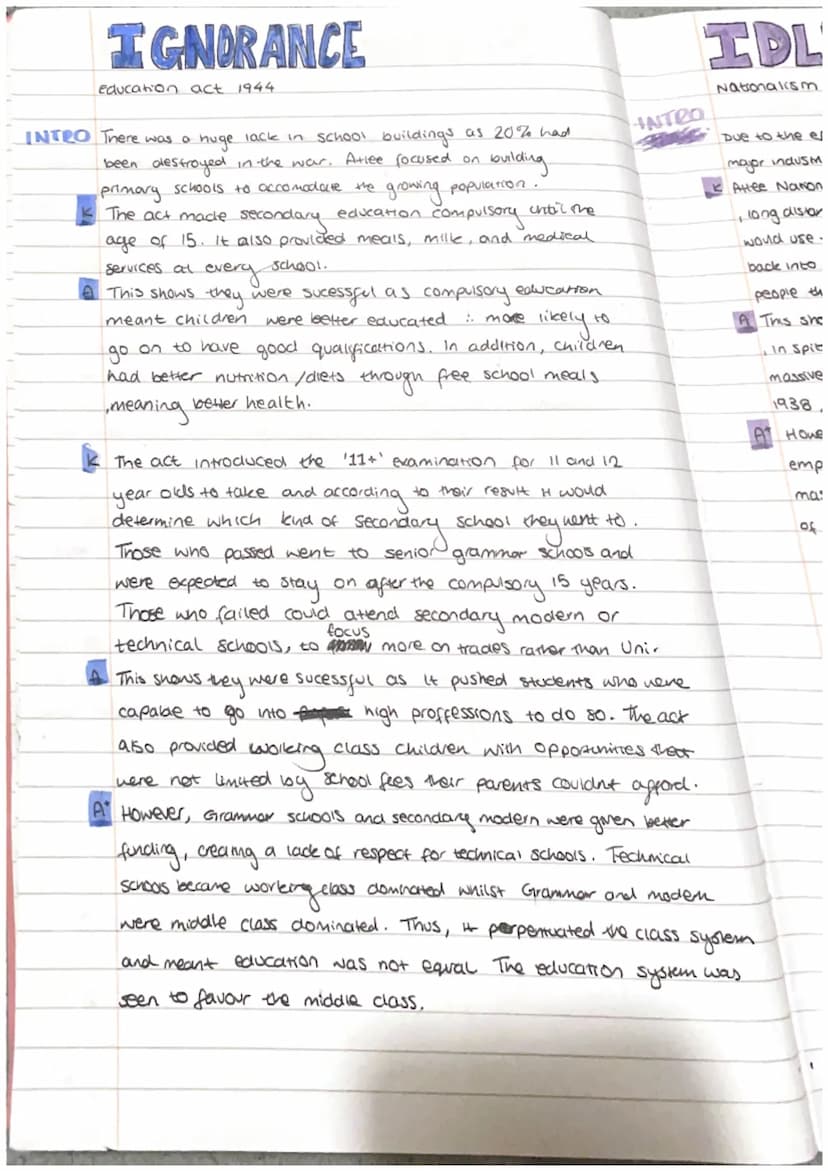 IGNORANCE
education act 1944
INTRO There was a huge lack in school buildings as 20% had
been destroyed in the war. Atlee focused on building
primary schools to accomodate the growing population.
K The act made secondary education compulsory until the
age of 15. It also provided meals, milk, and medical
services at every school.
A This shows they were sucessful as compulsory education
meant children were better educated ∴ more likely to
go on to have good qualifications. In addition, children
had better nutrition/diets through free school meals
, meaning better health.
K The act introduced the '11+' examination for 11 and 12
year olds to take and according to their result it would
determine which kind of secondary school they went to.
Those who passed went to senior grammar schools and
were expected to stay on after the compulsory 15 years.
Those who failed could attend secondary modern or
technical schools, to focus more on trades rather than Uni.
A This shows they were sucessful as it pushed students who were
capable to go into high proffessions to do so. The act
also provided working class children with opportunities that
were not limited by school fees their parents couldnt afford.
A+ However, Grammar schools and secondary modern were given better
funding, creating a lack of respect for technical schools. Technical
schools became working class dominated whilst Grammar and modern
were middle class dominated. Thus, it perpentuated the class system
and meant education was not equal. The education system was
seen to favour the middle class.
IDL
Nationalism
INTRO
Due to the e
major indust
K Atlee Nation
, long distan
would use.
back into
people th
A This sho
, in spit
massive
1938,
A+ Howe
emp
mas
of